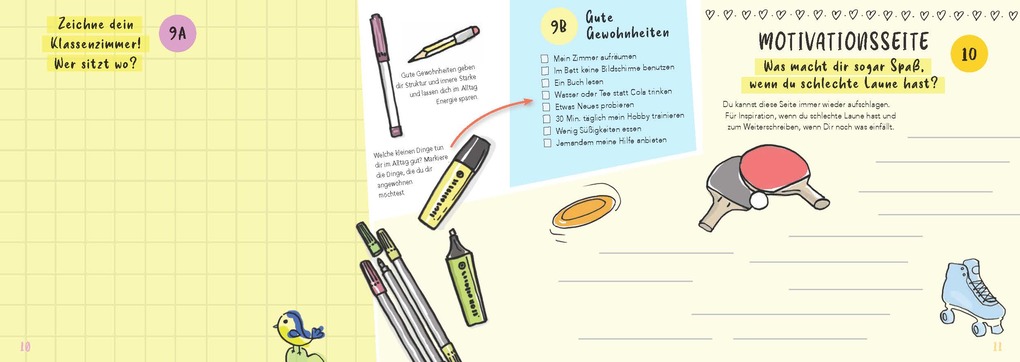 Zeichne dein
Klassenzimmer!
Wer sitzt wo?
9A
Gute Gewohnheiten geben
dir Struktur und innere Stärke
und lassen dich im Alltag
Energie sparen.
Welche kleinen Dinge tun
dir im Alltag gut? Markiere
die Dinge, die du dir
angewöhnen
möchtest.
9B
Gute
Gewohnheiten
Mein Zimmer aufräumen
Im Bett keine Bildschirme benutzen
Ein Buch lesen
Wasser oder Tee statt Cola trinken
Etwas Neues probieren
30 Min. täglich mein Hobby trainieren
Wenig Süßigkeiten essen
Jemandem meine Hilfe anbieten
MOTIVATIONSSEITE
10
Was macht dir sogar Spaß,
wenn du schlechte Laune hast?
Du kannst diese Seite immer wieder aufschlagen.
Für Inspiration, wenn du schlechte Laune hast und
zum Weiterschreiben, wenn Dir noch was einfällt.
10
11